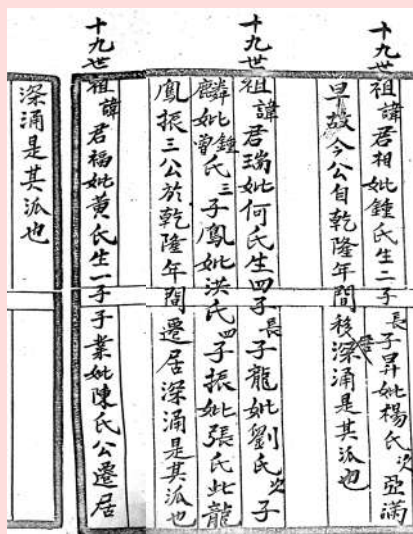 十九世祖諱君相妣鍾氏生二子長子昇妣楊氏次亞滿
早故今公自乾隆年間移居深涌是其派也
十九世祖諱君瑞妣何氏生四子長子龍妣劉氏次子
麟妣鍾曾氏三子鳳妣洪氏四子振妣張氏此龍
鳳振三公於乾隆年間遷居深涌是其派也
十九世祖諱君福妣黃氏生一子子業妣陳氏公遷居
深涌是其派也